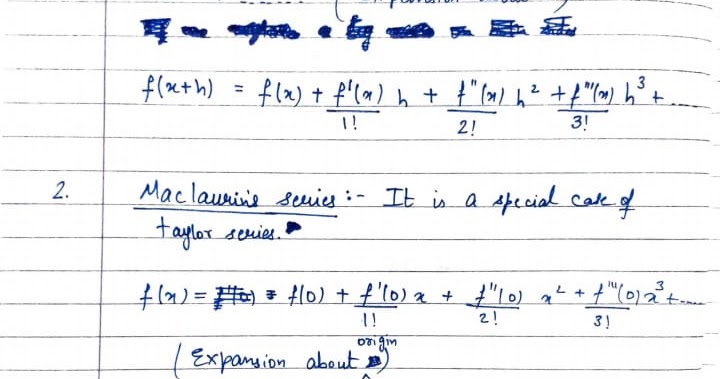 f(x+h) = f(x) + f'(x)/1! h + f"(x)/2! h² + f'''(x)/3! h³ + ....
2. Maclaurin's series :- It is a special case of
taylor series.
f(x) = f(0) + f'(0)/1! x + f"(0)/2! x² + f'''(0)/3! x³ + ....
(Expansion about origin)